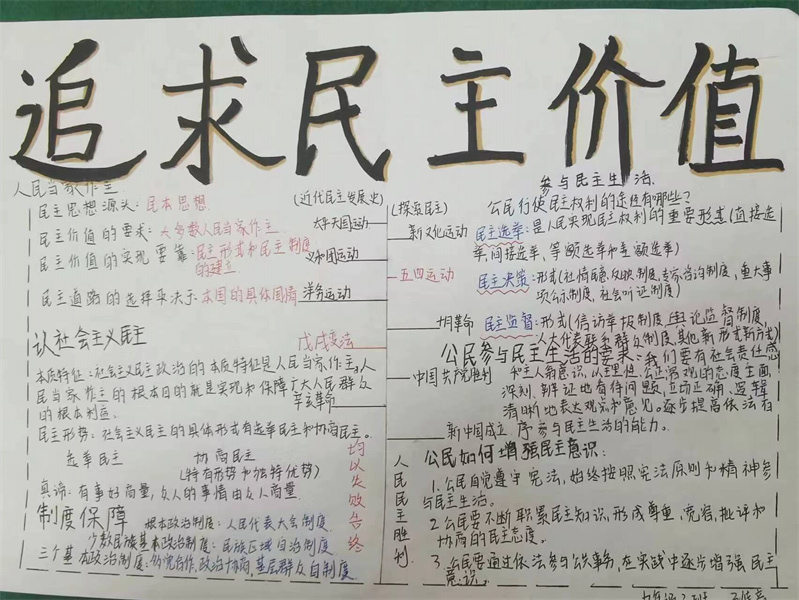 追求民主价值
人民当家作主
民主思想源头：民本思想.
民主价值的要求：大多数人民当家作主.
民主价值的实现要靠：民主形式和民主制度
的建立.
民主道路的选择取决于：本国的具体国情
认社会主义民主
本质特征：社会主义民主政治的本质特征是人民当家作主，人
民当家作主的根本目的就是实现和保障广大人民群众
的根本利益。
民主形势：社会主义民主的具体形式有选举民主和协商民主。
选举民主 协商民主
(特有形势和独特优势)
真谛：有事好商量，众人的事情由众人商量.
制度保障
根本政治制度：人民代表大会制度
少数民族基本政治制度：民族区域自治制度
三个基本政治制度：多党合作，政治协商，基层群众自制度
(近代民主发展史)
太平天国运动
义和团运动
洋务运动
戊戌变法
辛亥革命
均以失败告终
(探爱民主)
新文化运动
五四运动
明革命
中国共产党胜利
新中国成立
人民民主胜利.
参与民主生活.
公民行使民主权利的途径有哪些?
民主选举：是人民实现民主权利的重要形式(直接选
举，间接选举，等额选举和差额选举)
民主决策：形式(社情民意反映制度，专家咨询制度，重大事
项公示制度，社会听证制度)
民主监督：形式(信访举报制度，舆论监督制度
人大代表联系群众制度，其他新形式新方式)
公民参与民主生活的要求：我们要有社会责任感
和主人翁意识，以理性，公正客观的态度全面,
深刻，辩证地看待问题，立场正确，逻辑
清晰地表达观点和意见。逐步提高依法有
序参与民主生活的能力。
公民如何增强民主意识：
1.公民自觉遵守宪法，始终按照宪法原则和精神参
与民主生活。
2.公民要不断积累民主知识，形成尊重，宽容，批评和
协商的民主态度。
3.公民要通过依法参与公共事务，在实践中逐步增强民主
意识。